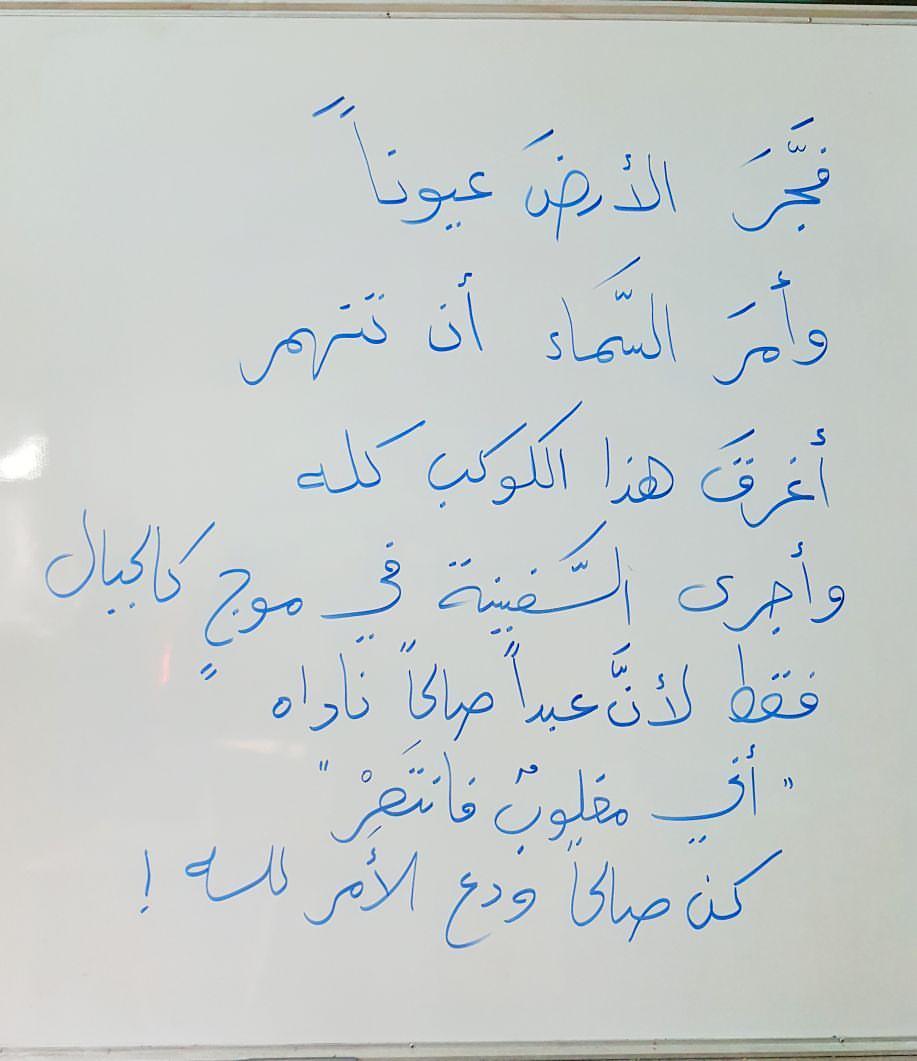 فجَّرَ الأرضَ عيوناً
وأمَرَ السَّماء أن تنهمر
أغرقَ هذا الكوكب كله
وأجرى السَّفينة في موجٍ كالجبال
فقط لأنَّ عبداً صالحاً ناداه
"أني مغلوبٌ فانتَصِرْ"
كن صالحاً ودع الأمر لله !